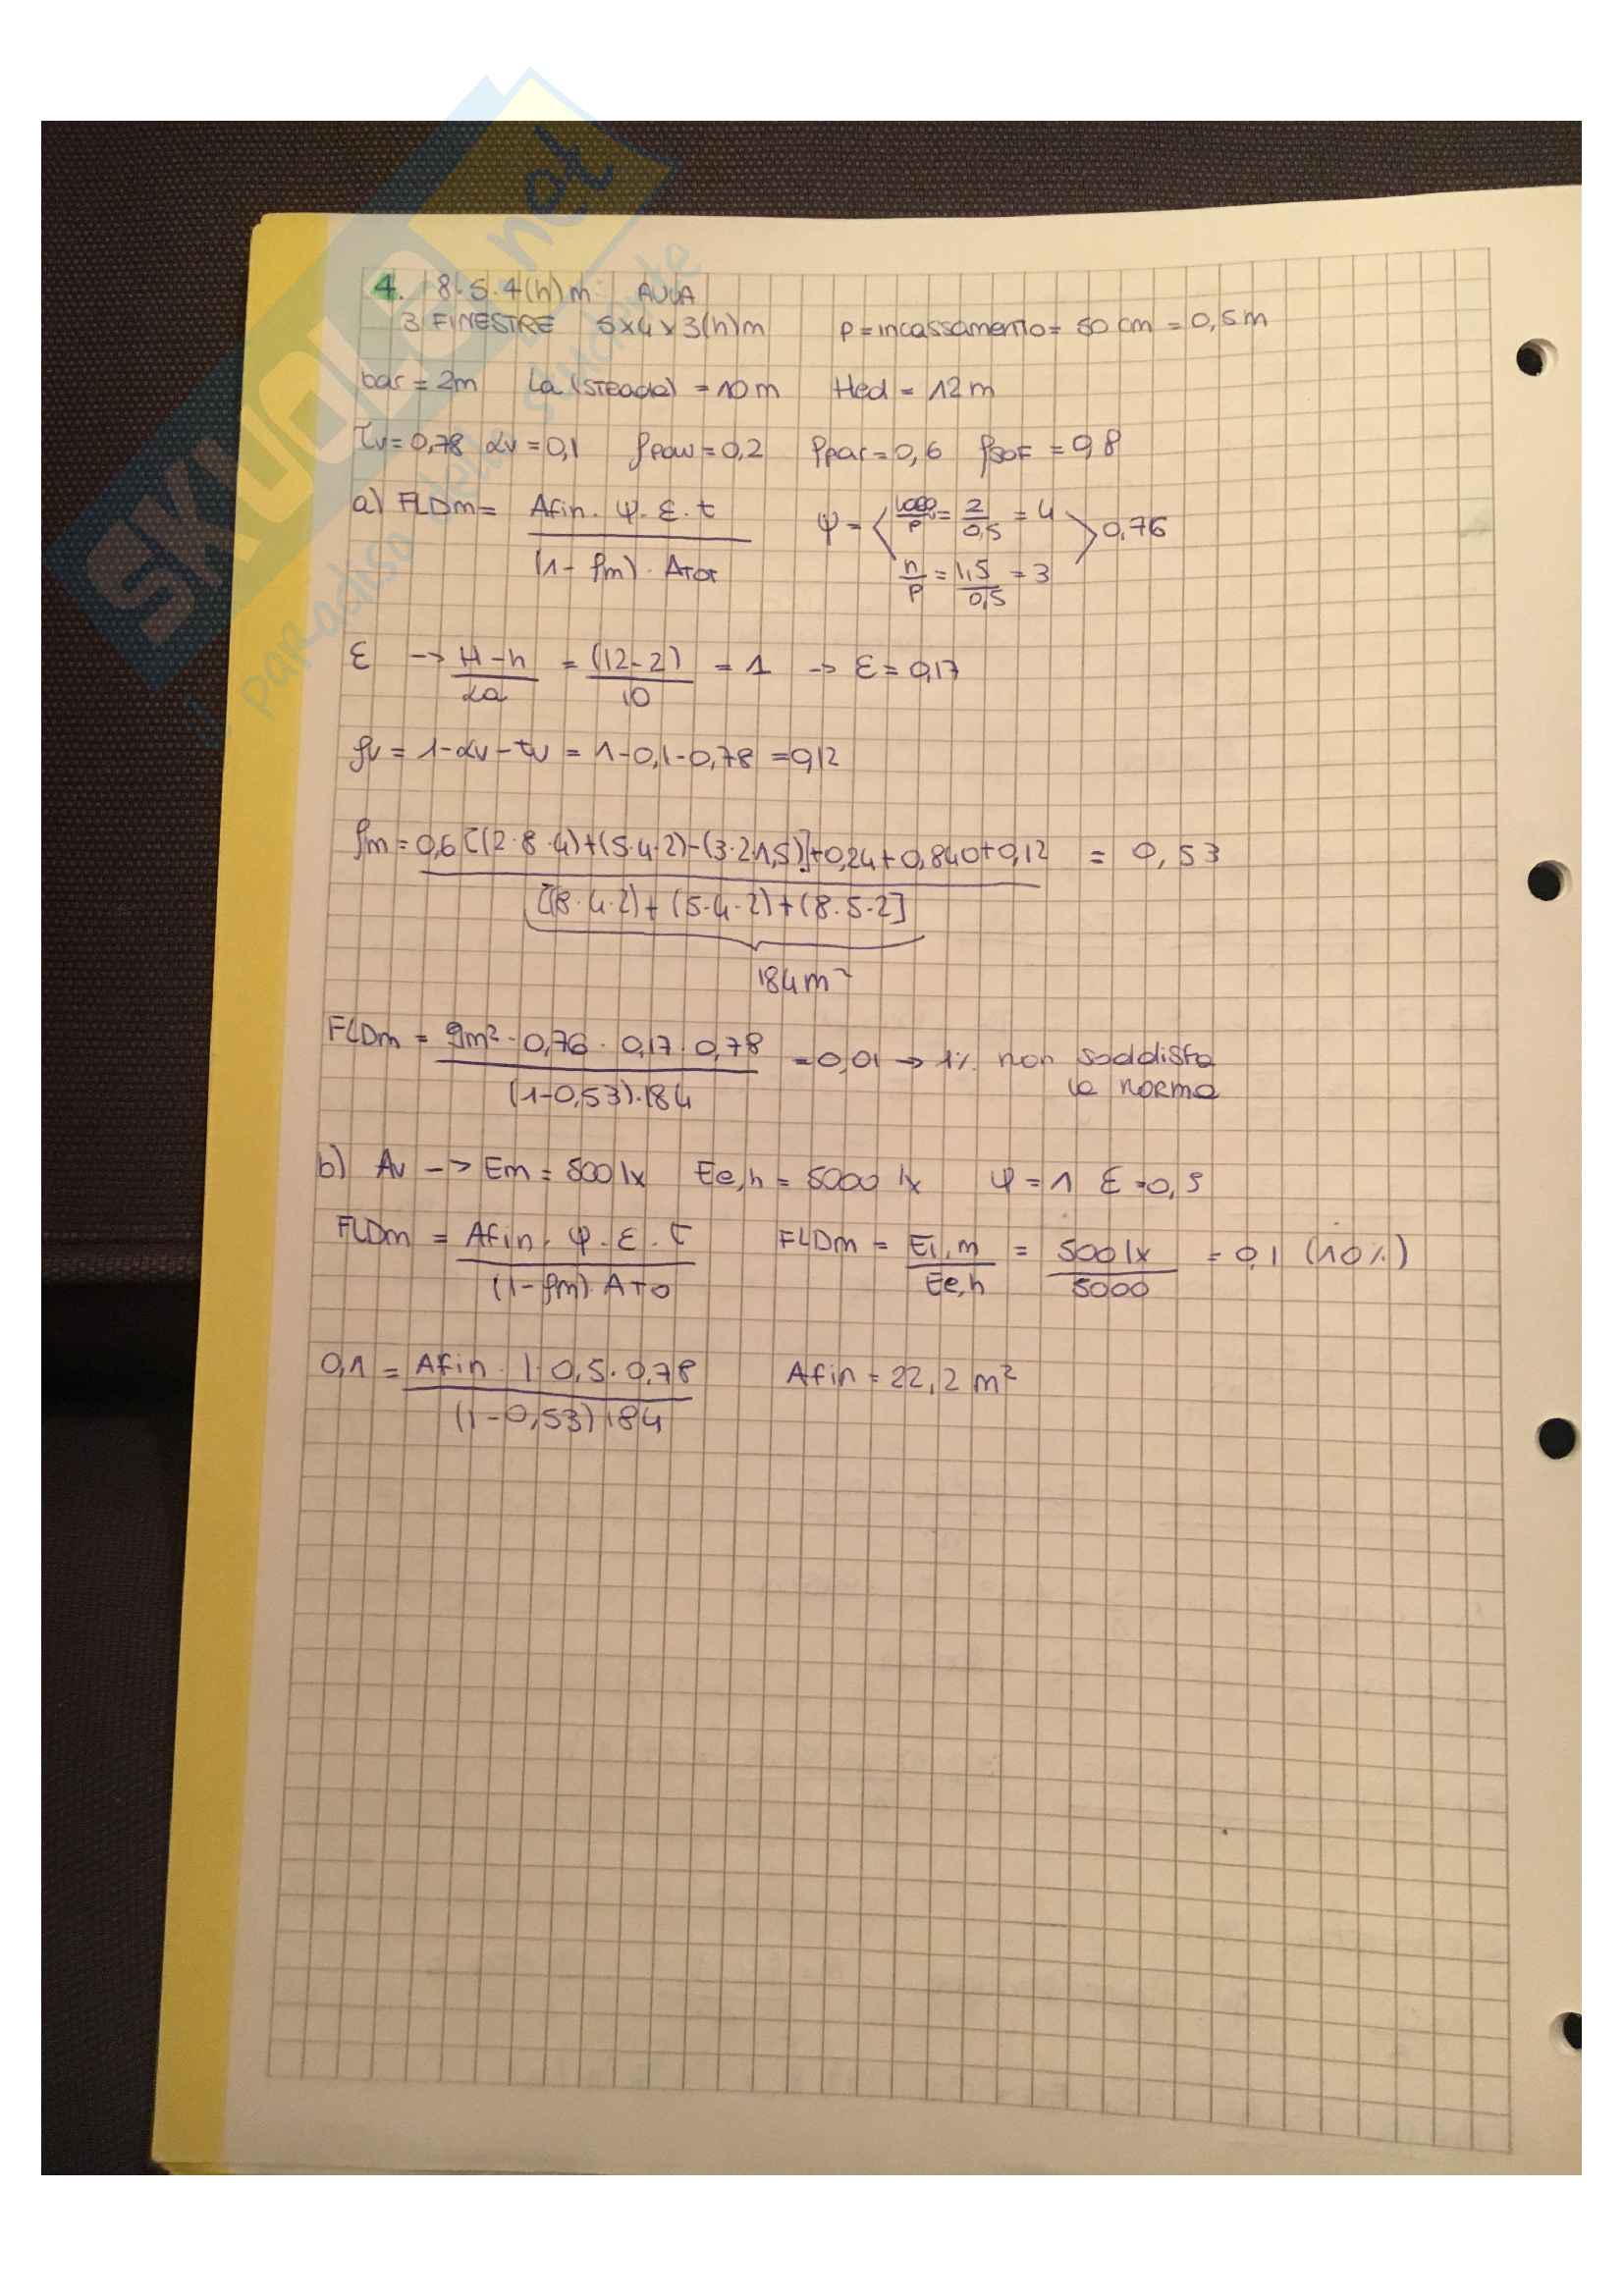 SKUOLA.net
il paradiso dello studente
4. 8·5·4(h)m AULA
3 FINESTRE 5x4x3(h)m p = incassamento = 50 cm = 0,5m
bar = 2m La (STRADA) = 10m Hed = 12m
τv = 0,78 αv = 0,1 ρpav = 0,2 ρpar = 0,6 ρSOF = 0,8
a) FLDm = Afin · ψ · ε · t / (1 - ρm) · ATOT ψ = / p = 2 / 0,5 = 4 0,76
h / p = 1,5 / 0,5 = 3
ε -> H - h / La = (12-2) / 10 = 1 -> ε = 0,17
ρv = 1 - αv - τv = 1 - 0,1 - 0,78 = 0,12
ρm = 0,6 [(2·8·4)+(5·4·2)-(3·2·1,5)]+0,24+0,840+0,12 / [(8·4·2)+(5·4·2)+(8·5·2)] = 0,53
184 m²
FLDm = 9m² · 0,76 · 0,17 · 0,78 / (1-0,53)·184 = 0,01 -> 1% non soddisfa
la norma
b) Av -> Em = 500 lx Ee,h = 5000 lx ψ = 1 ε = 0,5
FLDm = Afin · ψ · ε · τ / (1-ρm) · ATO FLDm = Ei,m / Ee,h = 500 lx / 5000 = 0,1 (10%)
0,1 = Afin · 1 · 0,5 · 0,78 / (1-0,53) 184 Afin = 22,2 m²